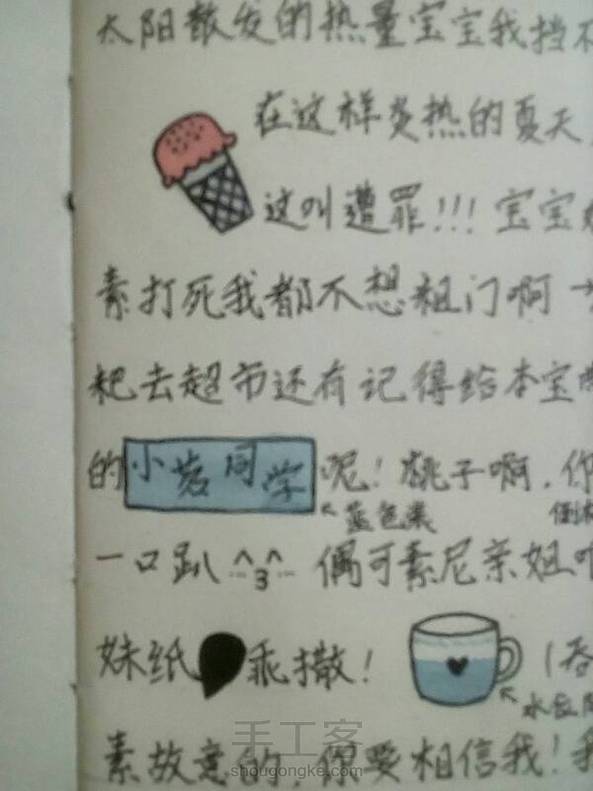 太阳散发的热量宝宝我挡不
在这样炎热的夏天
这叫遭罪!!!宝宝
素打死我都不想粗门啊→
粑去超市还有记得给本宝
的小若同学呢!桃子啊,你
↖蓝色素
一口趴^3^ 偶可素尼亲姐
妹纸乖撒! (吞
↖水
素故意的,你要相信我!我
手工客
shougongke.com